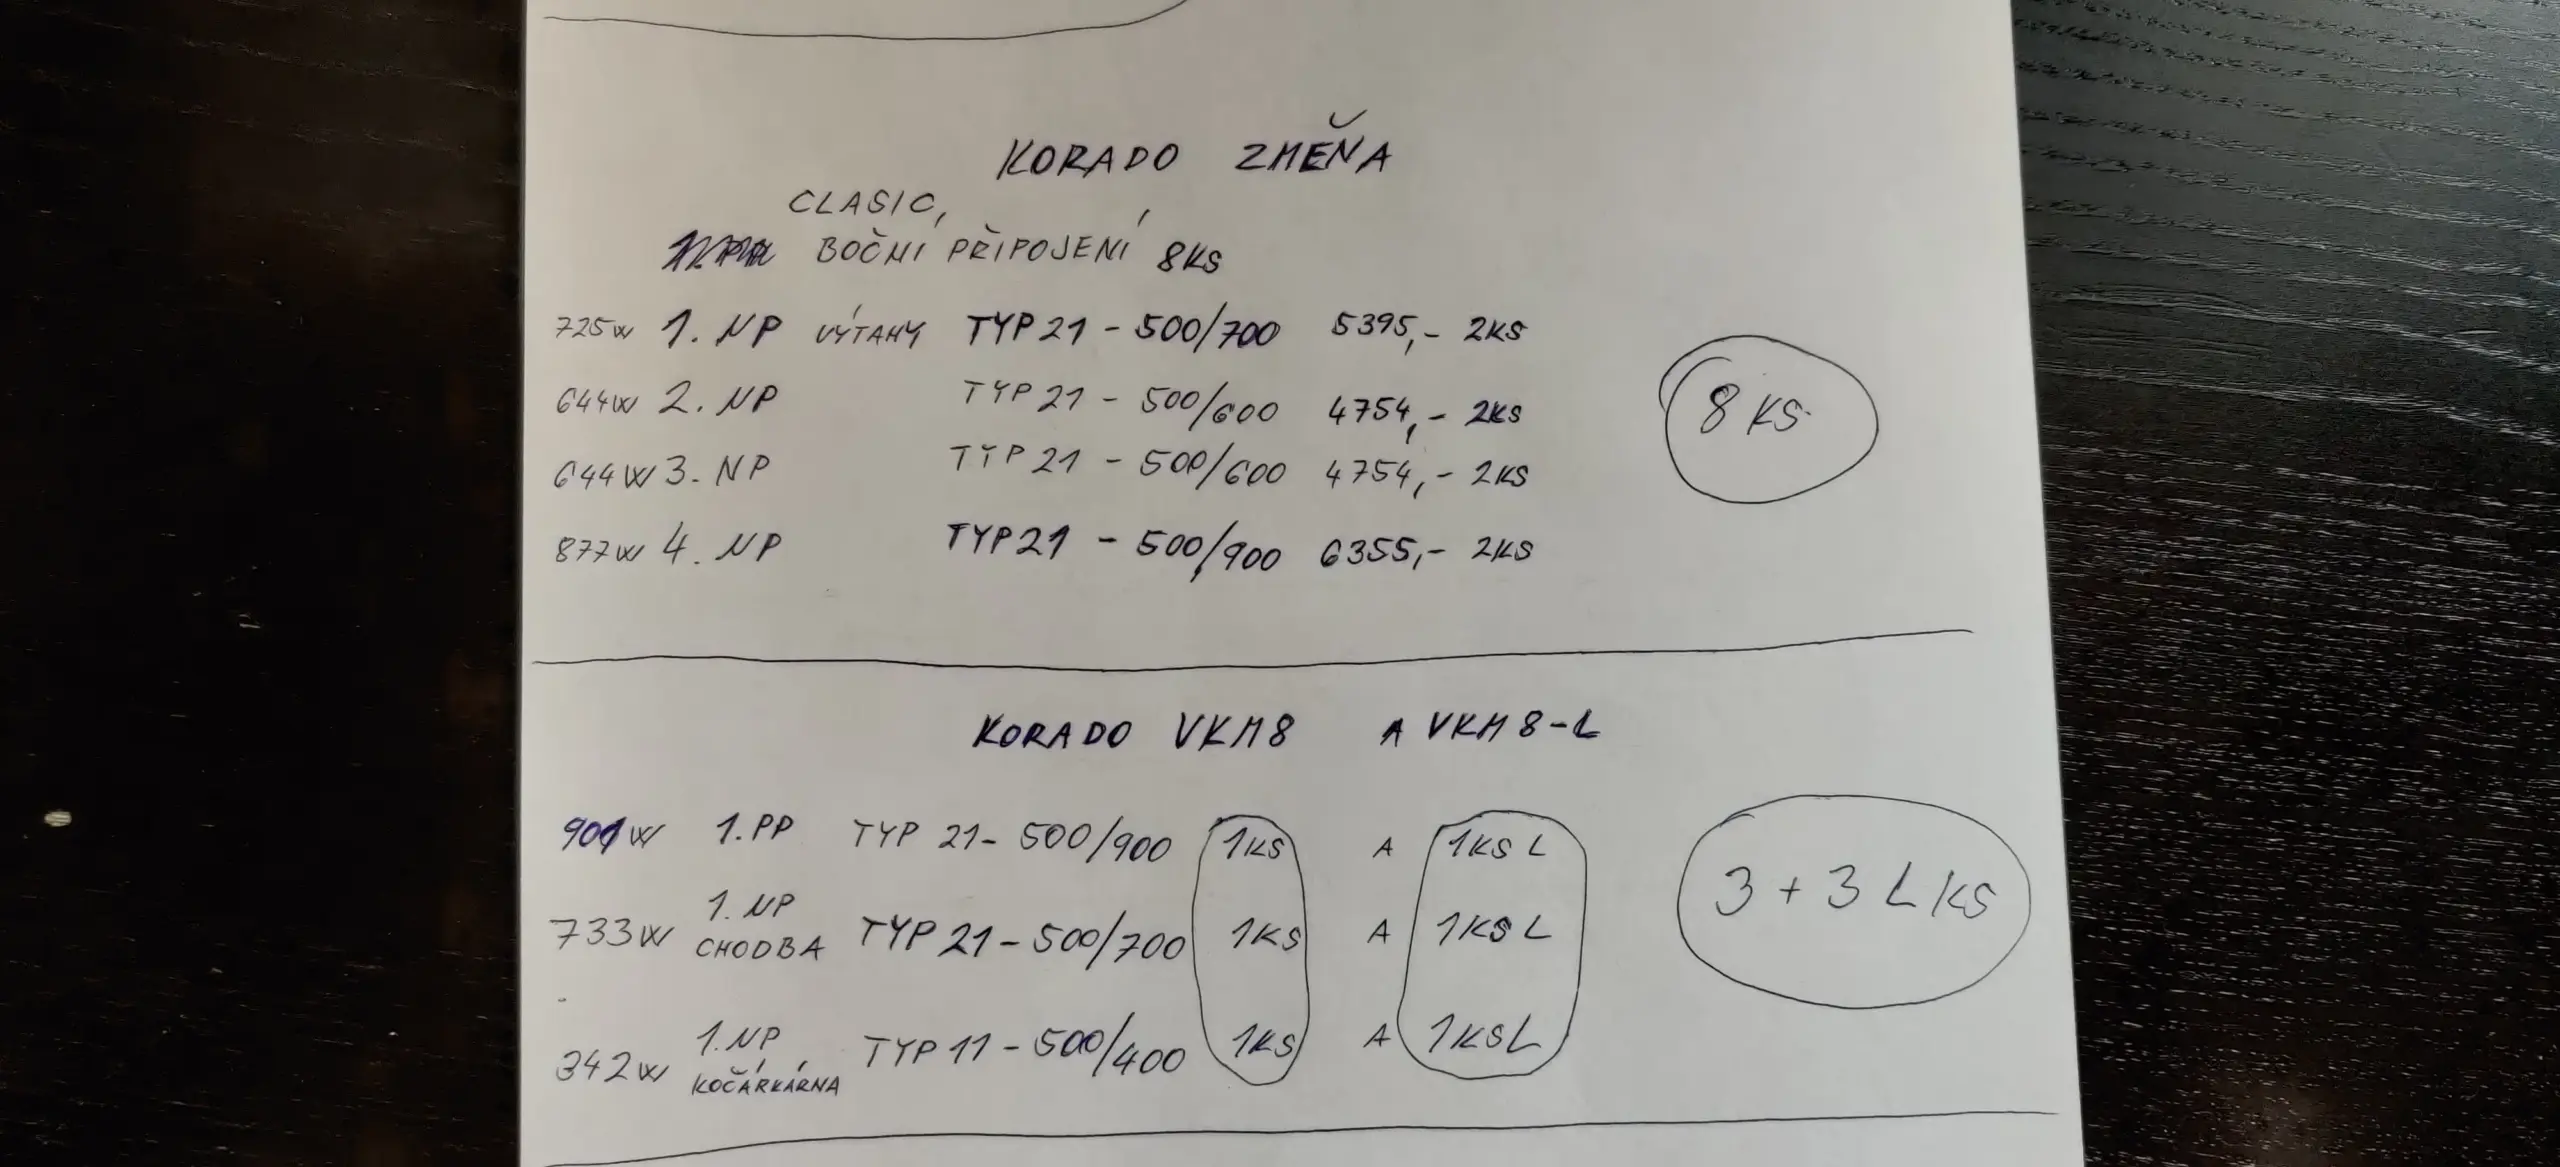 KORADO ZMEŇA
CLASIC,
BOČNÍ PŘIPOJENÍ 8KS
725W 1. NP VÝTAHY TYP 21 - 500/700 5395,- 2KS
644W 2. NP TYP 21 - 500/600 4754,- 2KS
8 KS
644W 3. NP TYP 21 - 500/600 4754,- 2KS
877W 4. NP TYP 21 - 500/900 6355,- 2KS
KORADO VKM8 A VKM8-L
901W 1. PP TYP 21 - 500/900 1KS A 1KS L
3 + 3 L KS
1. NP
733W CHODBA TYP 21 - 500/700 1KS A 1KS L
1. NP
342W KOČÁRKÁRNA TYP 11 - 500/400 1KS A 1KS L